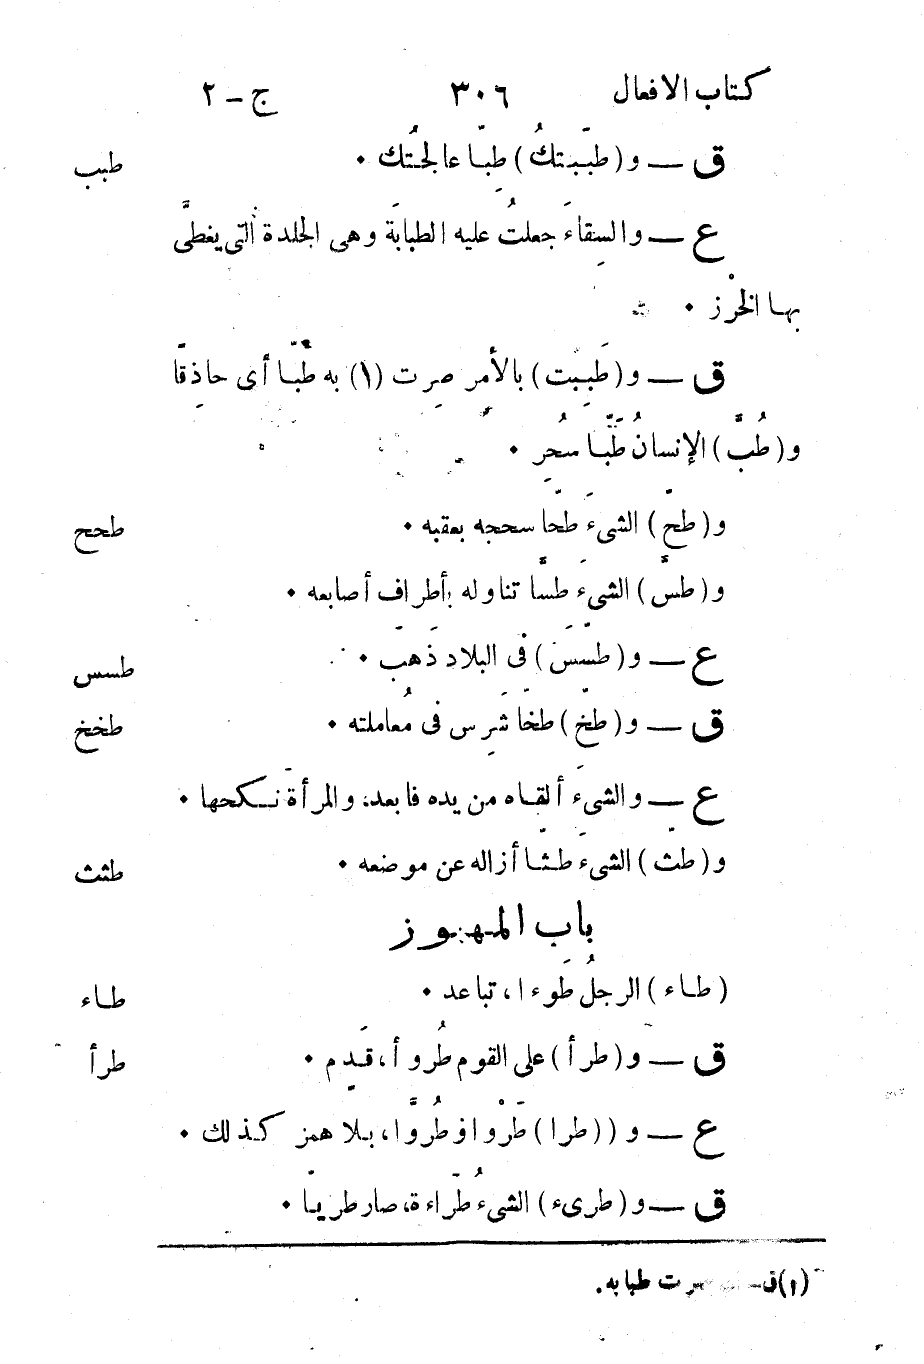 كتاب الافعال ٣٠٦ ج – ٢
ق — و (طبّبتكُ) طِبّا عالجتُك • طبب
ع — والسِقاءَ جعلتُ عليه الطبابَة وهى الجلدة التى يغطَّى
بها الخرْز •
ق — و (طَبِبت) بالأمرِ صِرت (١) به طَبّا أى حاذِقا
و (طُبَّ) الإنسانُ طَبّا سُحِر •
و (طحّ) الشىءَ طحّا سحجه بعقبه • طحح
و (طسَّ) الشىءَ طسَّا تناوله بأطراف أصابعه •
ع — و (طسّسَ) فى البلاد ذَهبَ • طسس
ق — و (طخّ) طخّا شَرِس فى مُعاملته • طخخ
ع — والشىءَ ألقاه من يده فابعده، والمرأةَ نكحها •
و (طثّ) الشىءَ طثّا أزاله عن موضعه • طثث
باب المهموز
(طاء) الرجلُ طَوءا، تباعد • طاء
ق — و (طرأ) على القوم طُروأ، قَدِم • طرأ
ع — و ((طرا) طَرْوا وطُروَّا، بلا همز كذلك •
ق — و (طرىء) الشىءُ طَراءة، صار طريّا •
(١) ق – صرت طبابه.